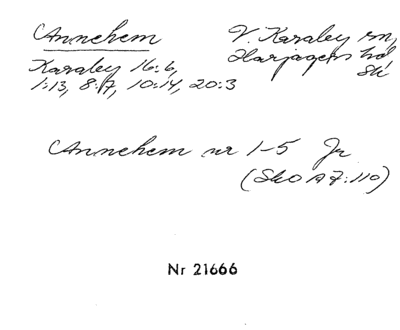 Annehem
V. Karaby sn,
Harjagers hd
Sk
Karaby 16:6,
1:13, 8:7, 10:14, 20:3
Annehem nr 1-5 Jr
(SkO A 7:110)
Nr 21666